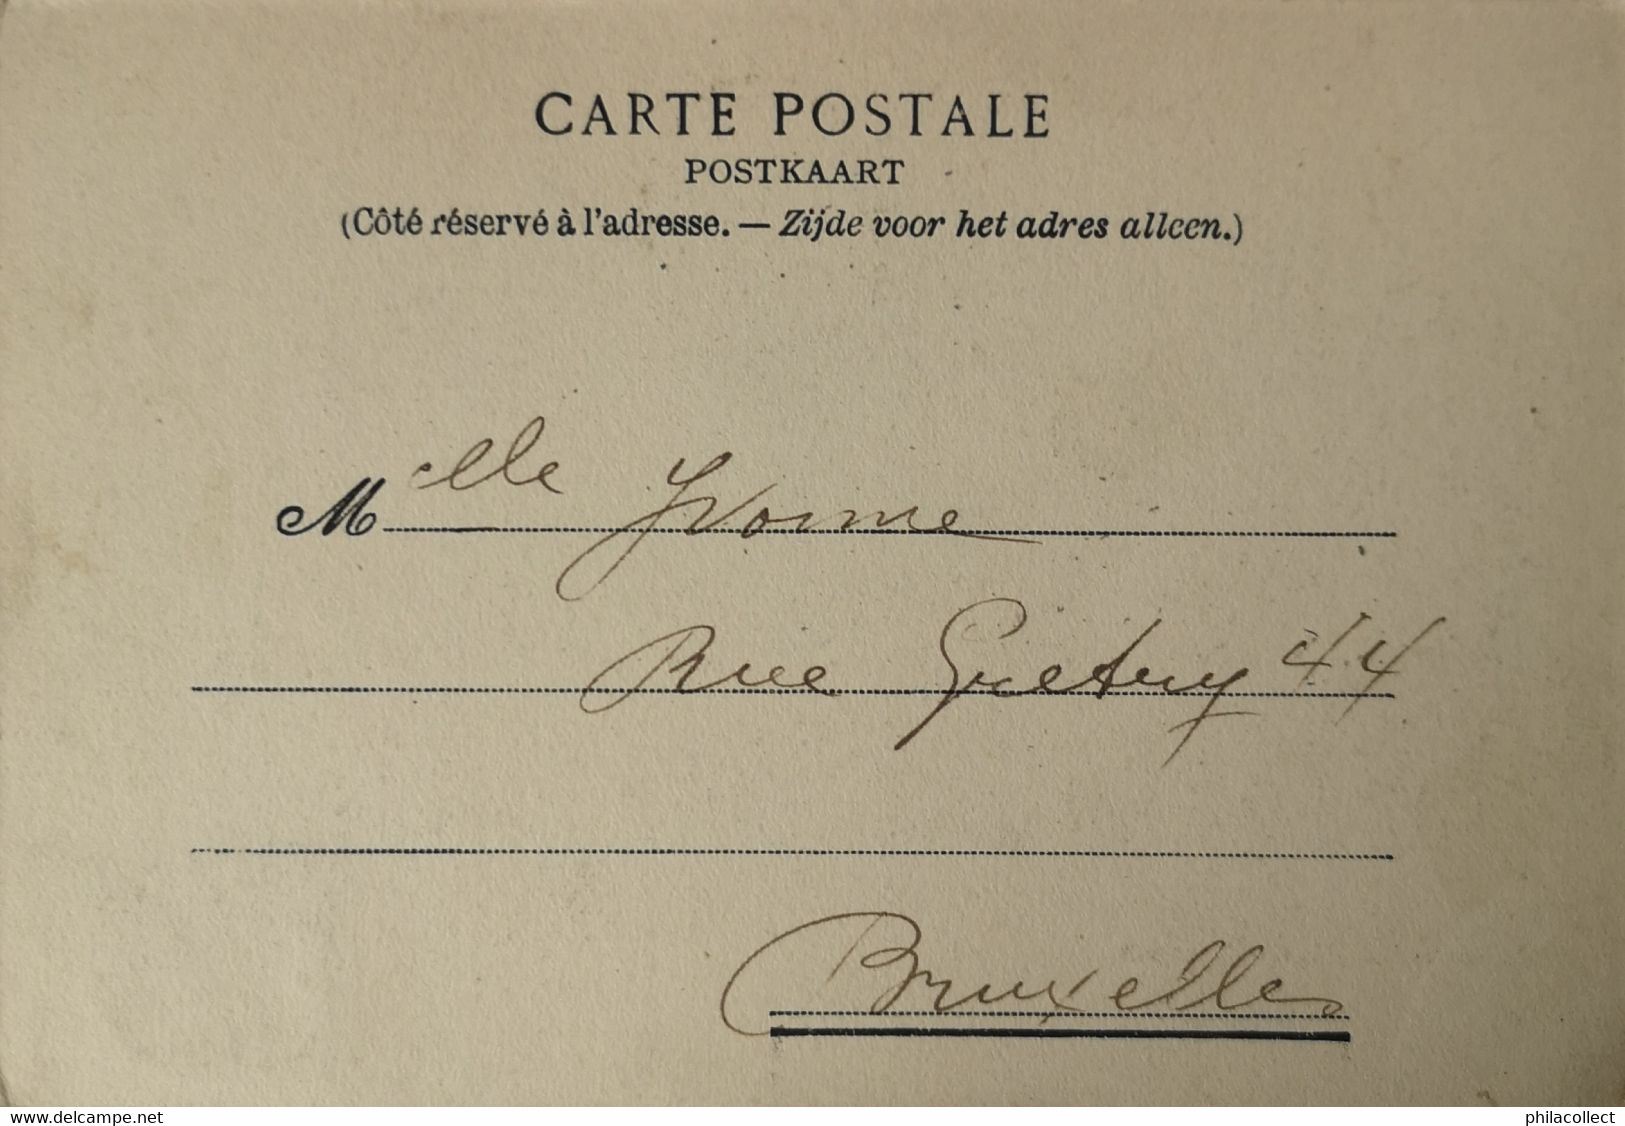 CARTE POSTALE
POSTKAART
(Côté réservé à l'adresse. — Zijde voor het adres alleen.)
Melle Yvonne
Rue Grétry 44
Bruxelles
www.delcampe.net philacollect